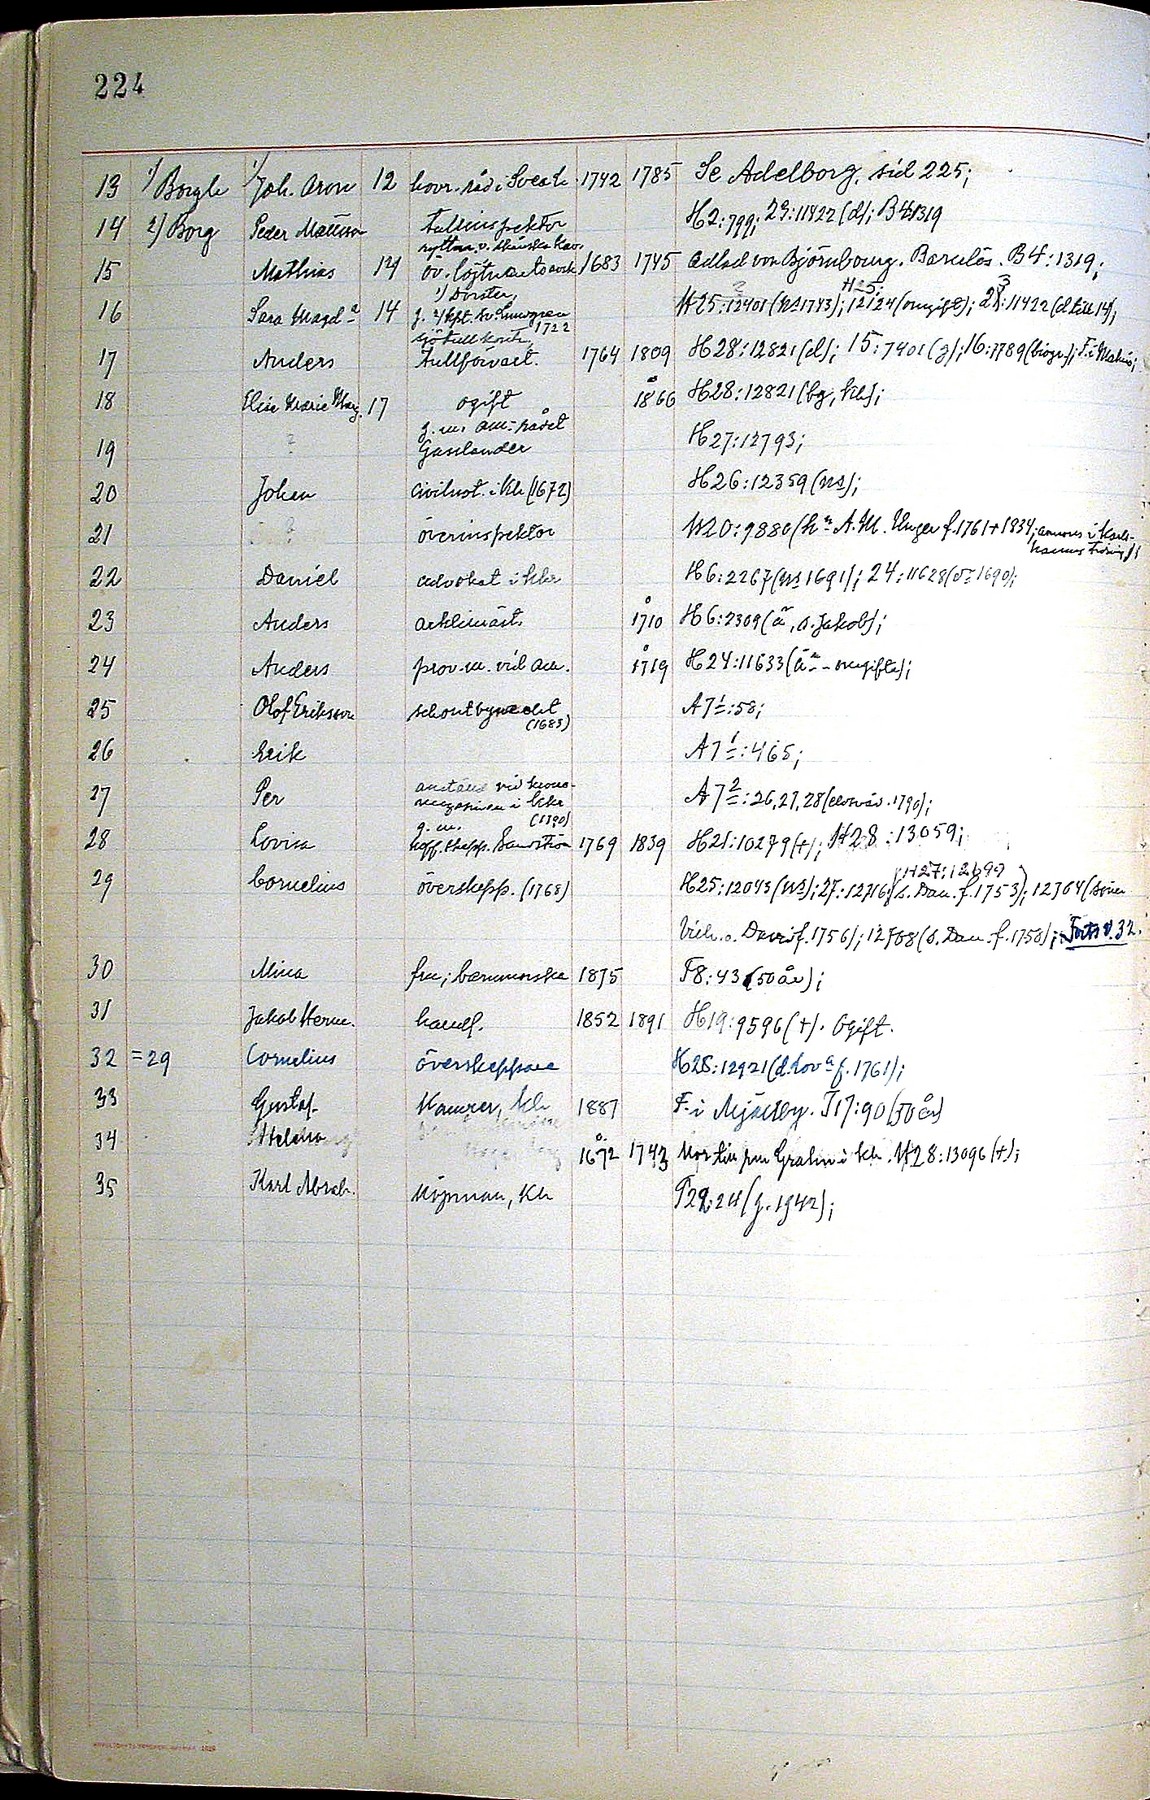 224
13 1) Borgh 1) Joh. Aron 12 hovr. råd i Svea h 1742 1785 Se Adelborg, sid 225;
14 2) Borg Peder Mattsson tullinspektor H2:799; 29:11422 (d); B4:1319
ryttm. v. skånska kav.
15 Mathias 14 öv. löjtnants avsk 1683 1745 adlad von Björnbourg. Barnlös. B4:1319;
1) Dorster, H25:
16 Sara Magd:a 14 g. 2) kpt. H25:12401 (ns 1743); 12124 (omgift); 23:11422 (d till 14);
sjötullkontr. 1722
17 Anders Tullförvalt. 1764 1809 H28:12821 (d); 15:7401 (g); 16:7789 (biogr.); F. i Malmö;
18 Elise Marie Marg. 17 ogift 1866 H28:12821 (bg, Khn);
g. m. am:rådet
19 ? Gaslander H27:12793;
20 Johan civilnot. i Khn (1672) H26:12359 (ns);
21 ? överinspektor H20:9880 (h:n A.M. Unger f. 1761 + 1834; annons i Karls-
hamns Tidning);
22 Daniel advokat i kkr H6:2267 (ns 1691); 24:11628 (1690);
23 Anders arklimäst. 1710 H6:2309 (ä, s. Jakob);
24 Anders prov.m. vid am. 1719 H24:11633 (ä omgifte);
25 Olof Eriksson schoutbynacht A7 1:58;
(1683)
26 Erik A7 1:465;
27 Per anställd vid krono- A7 2:26, 27, 28 1790);
magasinen i kkr
(1790)
g. m.
28 Lovisa koff. skepp. Sandström 1769 1839 H21:10279 (+); H28:13059;
H27:12699
29 Cornelius överskepp. (1768) H25:12043 (ns); 27:12716 (s. Dan. f. 1753); 12704 (söner
Vilh. o. David f. 1756); 12708 (s. Dan. f. 1758); Forts. 32.
30 Mina fru; barnmorska 1875 T8:43 (50 år);
31 Jakob Herm. handl. 1852 1891 H19:9596 (+). Ogift.
32 =29 Cornelius överskeppare H28:12921 (d. Lov:a f. 1761);
33 Gustaf Kamrer, Khn 1887 F. i Mjällby. T17:90 (50 år)
34 1672 1743 H28:13096 (+);
35 Karl Abrah. köpman, Khn T29:24 (g. 1942);